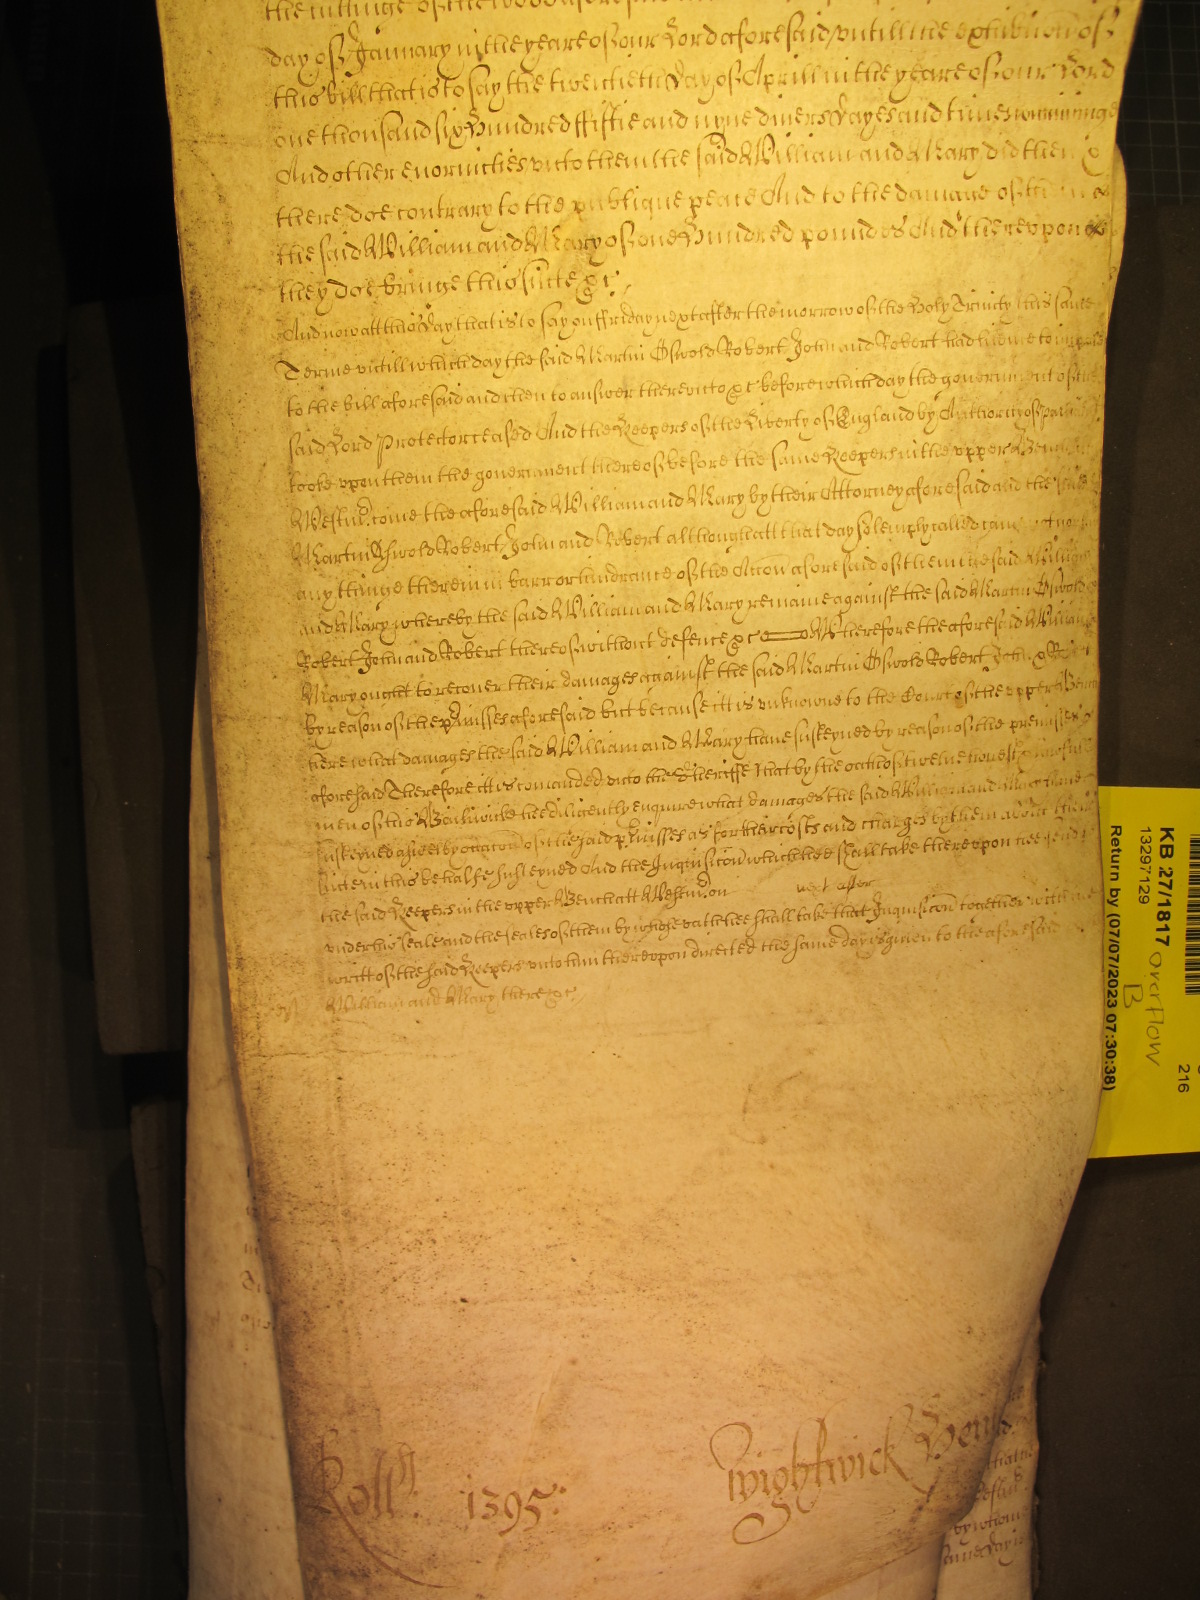 day of January in the yeare of our Lord aforesaid untill the exhibicon of
this bill that is to say the twentieth day of Aprill in the yeare of our Lord
one thousand six hundred fiftie and nyne divers dayes and tymes
And other enormities unto them the said William and Mary did then &
there doe contrary to the publique peace And to the damage of
the said William and Mary of one hundred poundes And thereupon
they doe bringe this suite &c
And now att this day that is to say on ffriday next after the morrow of the Holy Trinity this same
Terme untill which day the said Martin Oswold Robert John and Robert had tyme to imparle
to the bill aforesaid and then to answer thereunto &c before which day the government of the
said Lord Protector ceased And the Keepers of the Liberty of England by Authority of
tooke upon them the government thereof before the same Keepers in the upper Bench
Westm̃ come the aforesaid William and Mary by their Attorney aforesaid and the said
Martin Oswold Robert John and Robert although att that day solemply called came not nor
any thinge therein in barr or hindrance of the Accon aforesaid of them the said William
and Mary whereby the said William and Mary remaine against the said Martin Oswold
Robert John and Robert thereof without defence &c Wherefore the aforesaid William
Mary ought to recover their damages against the said Martin Oswold Robert John & Robert
by reason of the p̱misses aforesaid but because itt is unknowne to the Court of the upper Bench
here what damages the said William and Mary have susteyned by reason of the premisses
aforesaid Therefore itt is comanded unto the Sheriffe That by the oathes of twelve honest & lawfull
men of this Bailiwicke hee diligently enquire what damages the said William and Mary have
susteyned aswell by occacon of the said p̱misses as for their costs and charges by them about their
suite in this behalfe susteyned And the Inquisicon which hee shall take thereupon hee send
the said Keepers in the upper Bench att Westm̃ on next after
under his seale and the seales of them by whose oath hee shall take that Inquisicon together with the
writt of the said Keepers unto him thereupon directed the same day is given to the aforesaid
William and Mary there &c
Roll 1395
Wightwick
KB 27/1817 overflow
13297129 B
Return by (07/07/2023 07:30:38)
216